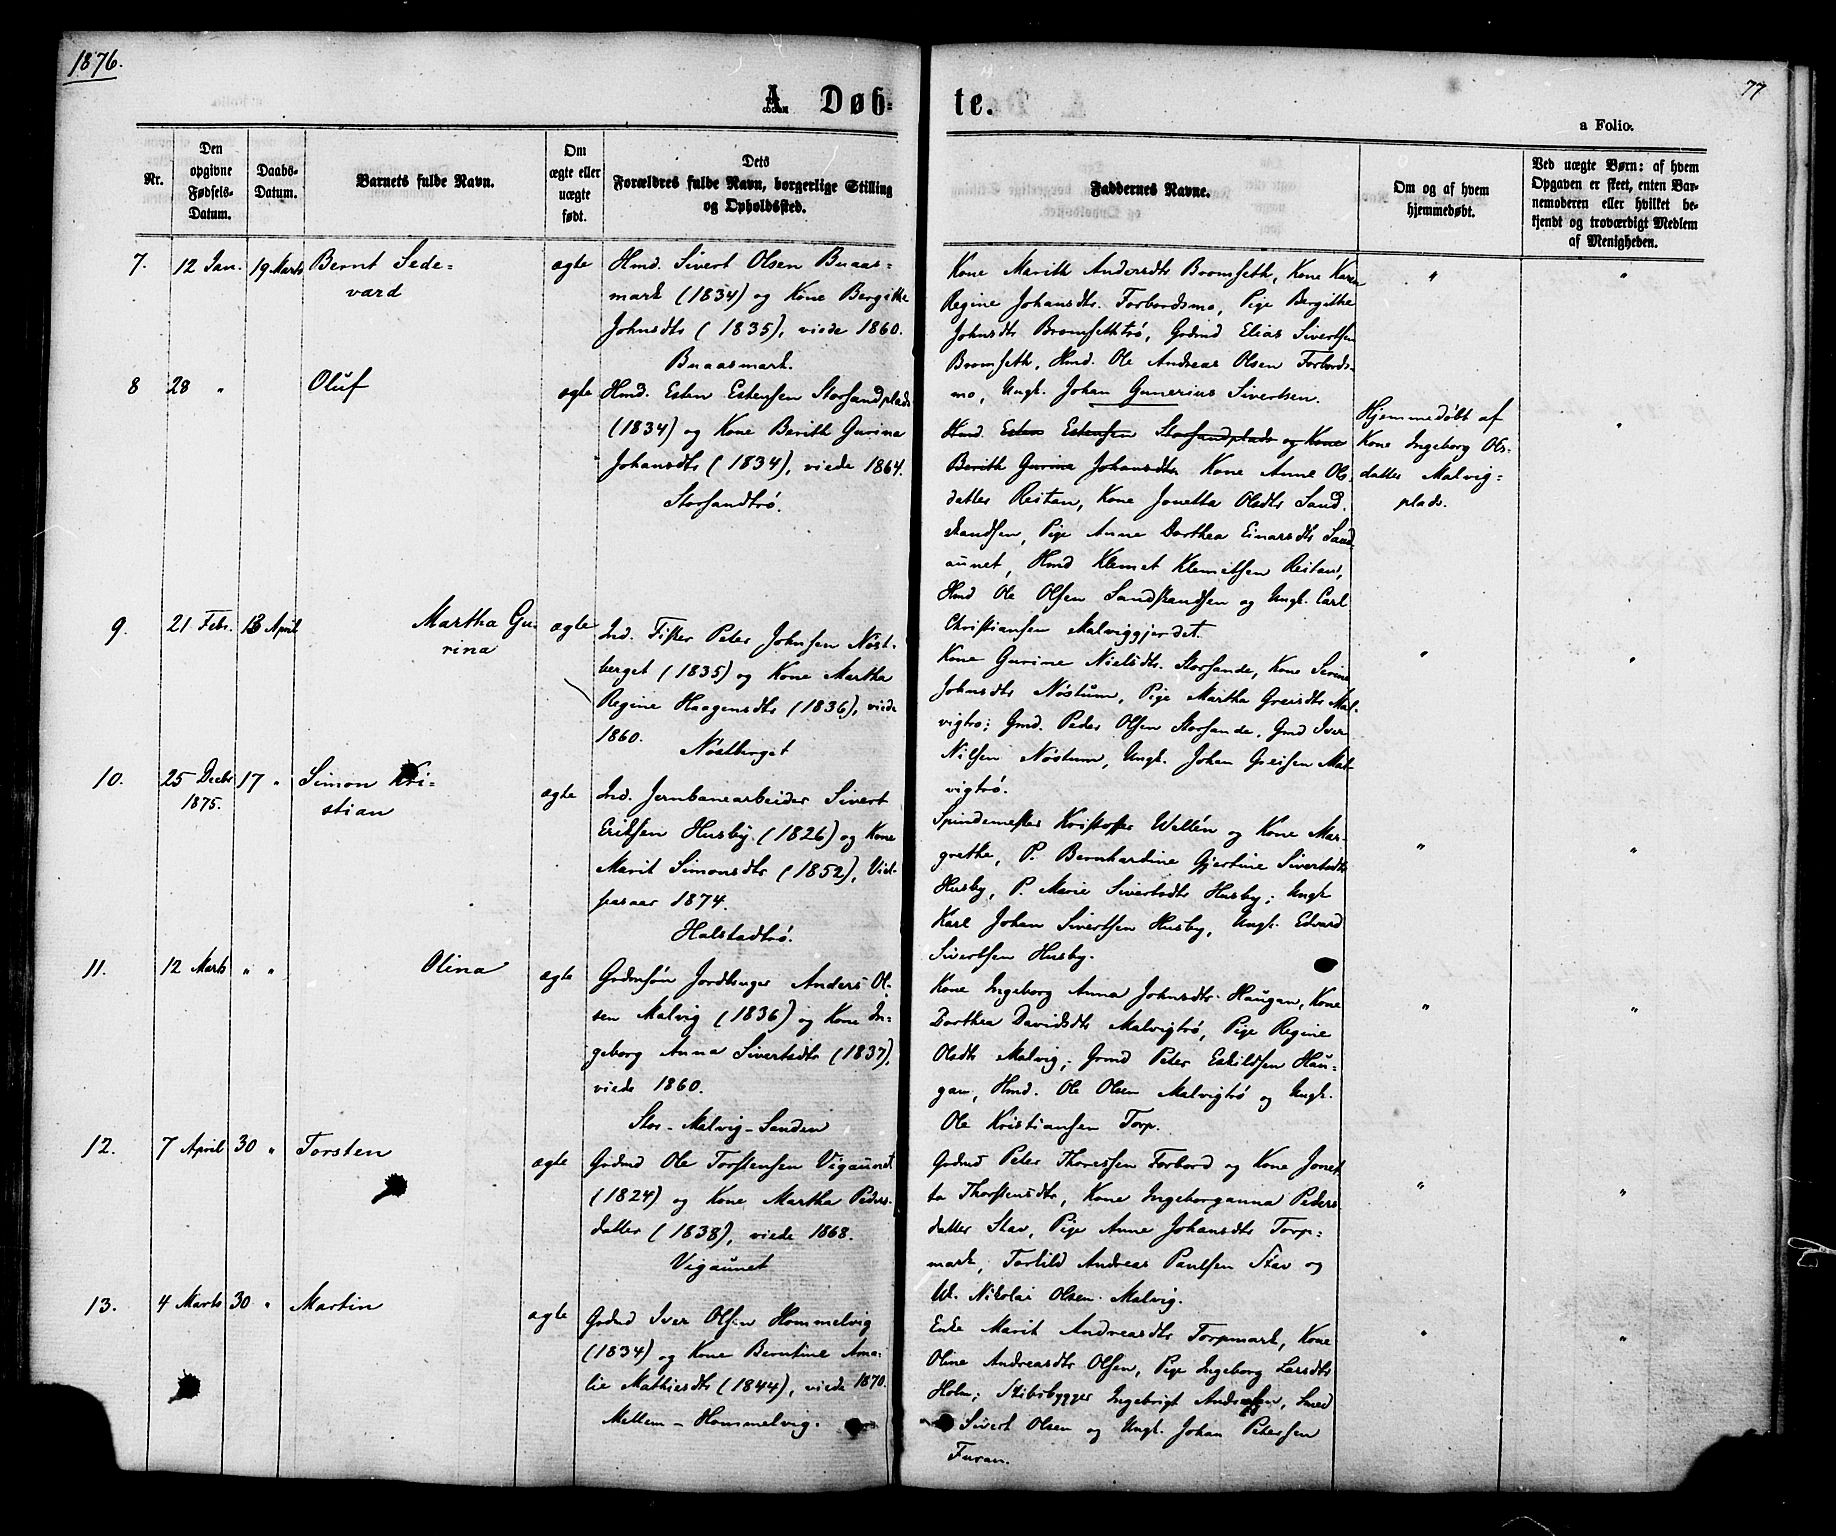 1876.
77
A Døb-
te.
a Folio.
Nr.
Den opgivne Fødsels-Datum.
Daabs-Datum.
Barnets fulde Navn.
Om ægte eller uægte født.
Dets Forældres fulde Navn, borgerlige Stilling og Opholdssted.
Faddernes Navne.
Om og af hvem hjemmedøbt.
Ved uægte Børn: af hvem Opgaven er skeet, enten Barnemoderen eller hvilket bekjendt og troværdigt Medlem af Menigheden.
7. 12 Jan. 19 Marts Bernt Sede=
vard
ægte
Hmd. Sivert Olsen Buaas-
mark (1834) og Kone Bergitte
Johnsdtr (1835), viede 1860.
Buaasmark.
Kone Marith Andersdtr Bromseth, Kone Karen
Regine Johansdtr. Forbordsmo, Pige Bergithe
Johnsdtr Bromsethtrø, Grdmd Elias Sivertsen
Bromseth, Hmd. Ole Andreas Olsen Forbords-
mo, Ungk. Johan Gunerius Sivertsen.
" "
8 28 " Oluf
ægte
Hmd. Esten Estensen Storsandplads
(1834) og Kone Berith Gurina
Johansdtr (1834), viede 1864.
Storsandtrø.
Hmd. Esten Estensen Storsandplads og Kone
Berith Gurina Johansdtr Kone Anne Ols
datter Reitan, Kone Jonetta Olsdtr Sand
strandsen, Pige Anne Dorthea Einarsdtr Sand-
aunet, Hmd Klemet Klemetsen Reitan,
Hmd Ole Olsen Sandstrandsen og Ungk. Carl
Christiansen Malviggjerdet.
Hjemmedøbt af
Kone Ingeborg Ols-
datter Malvig=
plads.
"
9. 21 Febr. 13 April Martha Gu-
rina
ægte
Ind. Fisker Peter Johnsen Nøst-
berget (1835) og Kone Martha
Regine Haagensdtr (1836), viede
1860. Nøstberget
Kone Gurine Nielsdtr. Storsande, Kone Serine
Johnsdtr Nøstum, Pige Martha Greisdtr Mal-
vigtro; Gmd. Peder Olsen Storsande, Gmd Iver
Nilsen Nøstum, Ungk. Johan Greisen Mal-
vigtrø.
" "
10. 25 Decbr 1875. 17 " Simon Kri=
stian
ægte
Ind. Jernbanearbeider Sivert
Eriksen Husby (1826) og Kone
Marit Simonsdtr (1852), Viel-
sesaar 1874.
Halstadtrø.
Spindemester Kristoffer Wellén og Kone Mar-
grethe, P. Bernhardine Gjertine Sivertsdtr
Husby, P. Marie Sivertsdtr Husby; Ungk
Karl Johan Sivertsen Husby, Ungk. Edvard
Sivertsen Husby.
" "
11. 12 Marts " " Olina
ægte
Grdmsøn Jordbruger Anders Ol-
sen Malvig (1836) og Kone In-
geborg Anna Sivertsdtr (1837),
viede 1860.
Stor-Malvig-Sanden
Kone Ingeborg Anna Johnsdtr Haugan, Kone
Dorthea Davidsdtr Malvigtrø, Pige Regine
Olsdtr Malvig; Grmd Peter Eskildsen Hau-
gan, Hmd. Ole Olsen Malvigtrø og Ungk.
Ole Kristiansen Torp.
" "
12. 7 April 30 " Torsten
ægte
Grdmd Ole Torstensen Vigaunet
(1824) og Kone Martha Peders-
datter (1838), viede 1868.
Vigaunet
Grdmd Peter Thoressen Forbord og Kone Jonet-
ta Thorstensdtr, Kone Ingeborganna Peders
datter Stav, Pige Anne Johansdtr Torp=
mark, Andreas Paulsen Stav og
U. Nikolai Olsen Malvig.
" "
13. 4 Marts 30 " Martin
ægte
Grdmd Iver Olsen Hommelvig
(1834) og Kone Berntine Ama-
lie Mathisdtr (1844), viede 1870.
Mellem-Hommelvig.
Enke Marit Andreasdtr Torpmark, Kone
Oline Andreasdtr Olsen, Pige Ingeborg Larsdtr
Holm; Skibsbygger Ingebrigt Andersen, Smed
Sivert Olsen og Ungk. Johan Petersen
Furan.
" "